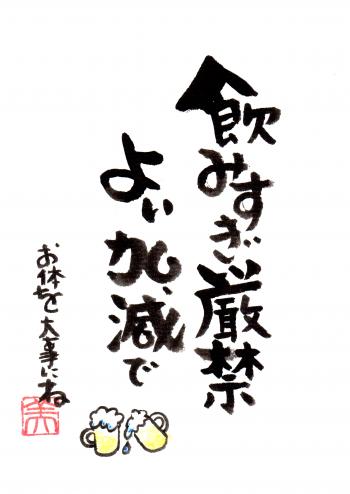 飲みすぎ厳禁
よい加減で
お体を大事にね